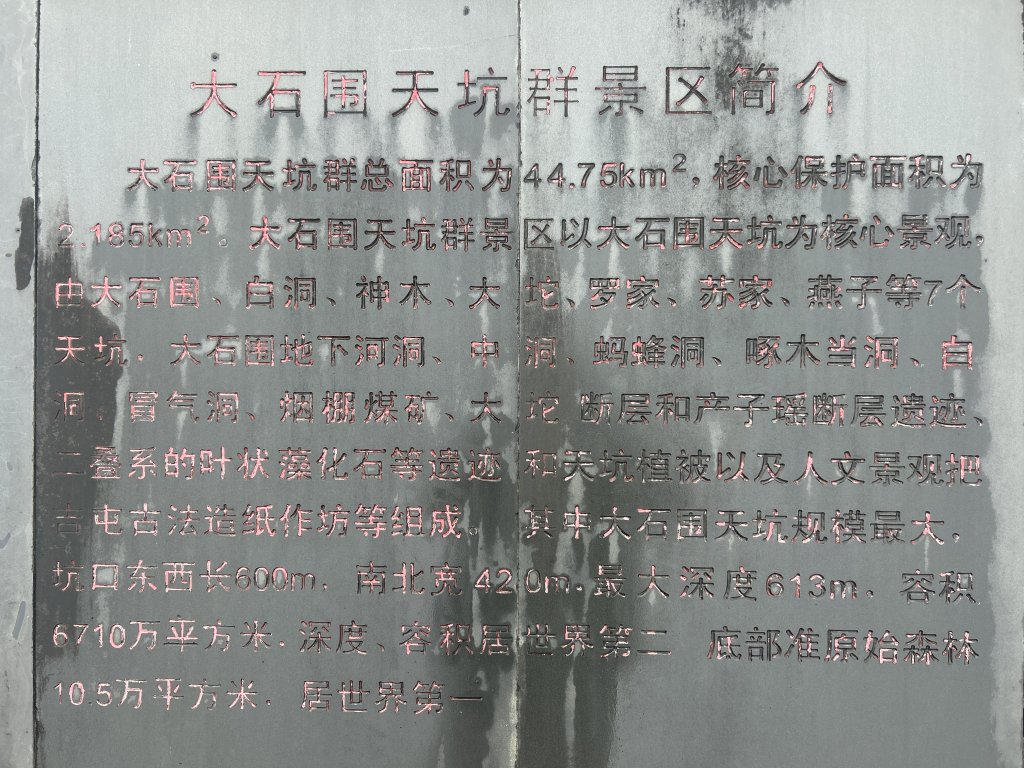 大石围天坑群景区简介
大石围天坑群总面积为44.75km²，核心保护面积为
2.185km²．大石围天坑群景区以大石围天坑为核心景观，
由大石围、白洞、神木、大坨、罗家、苏家、燕子等7个
天坑．大石围地下河洞、中洞、蚂蜂洞、啄木当洞、白
洞、冒气洞、烟棚煤矿、大坨断层和产子瑶断层遗迹、
二叠系的叶状藻化石等遗迹和天坑植被以及人文景观把
吉屯古法造纸作坊等组成。其中大石围天坑规模最大，
坑口东西长600m．南北宽420m．最大深度613m．容积
6710万平方米．深度、容积居世界第二 底部准原始森林
10.5万平方米．居世界第一